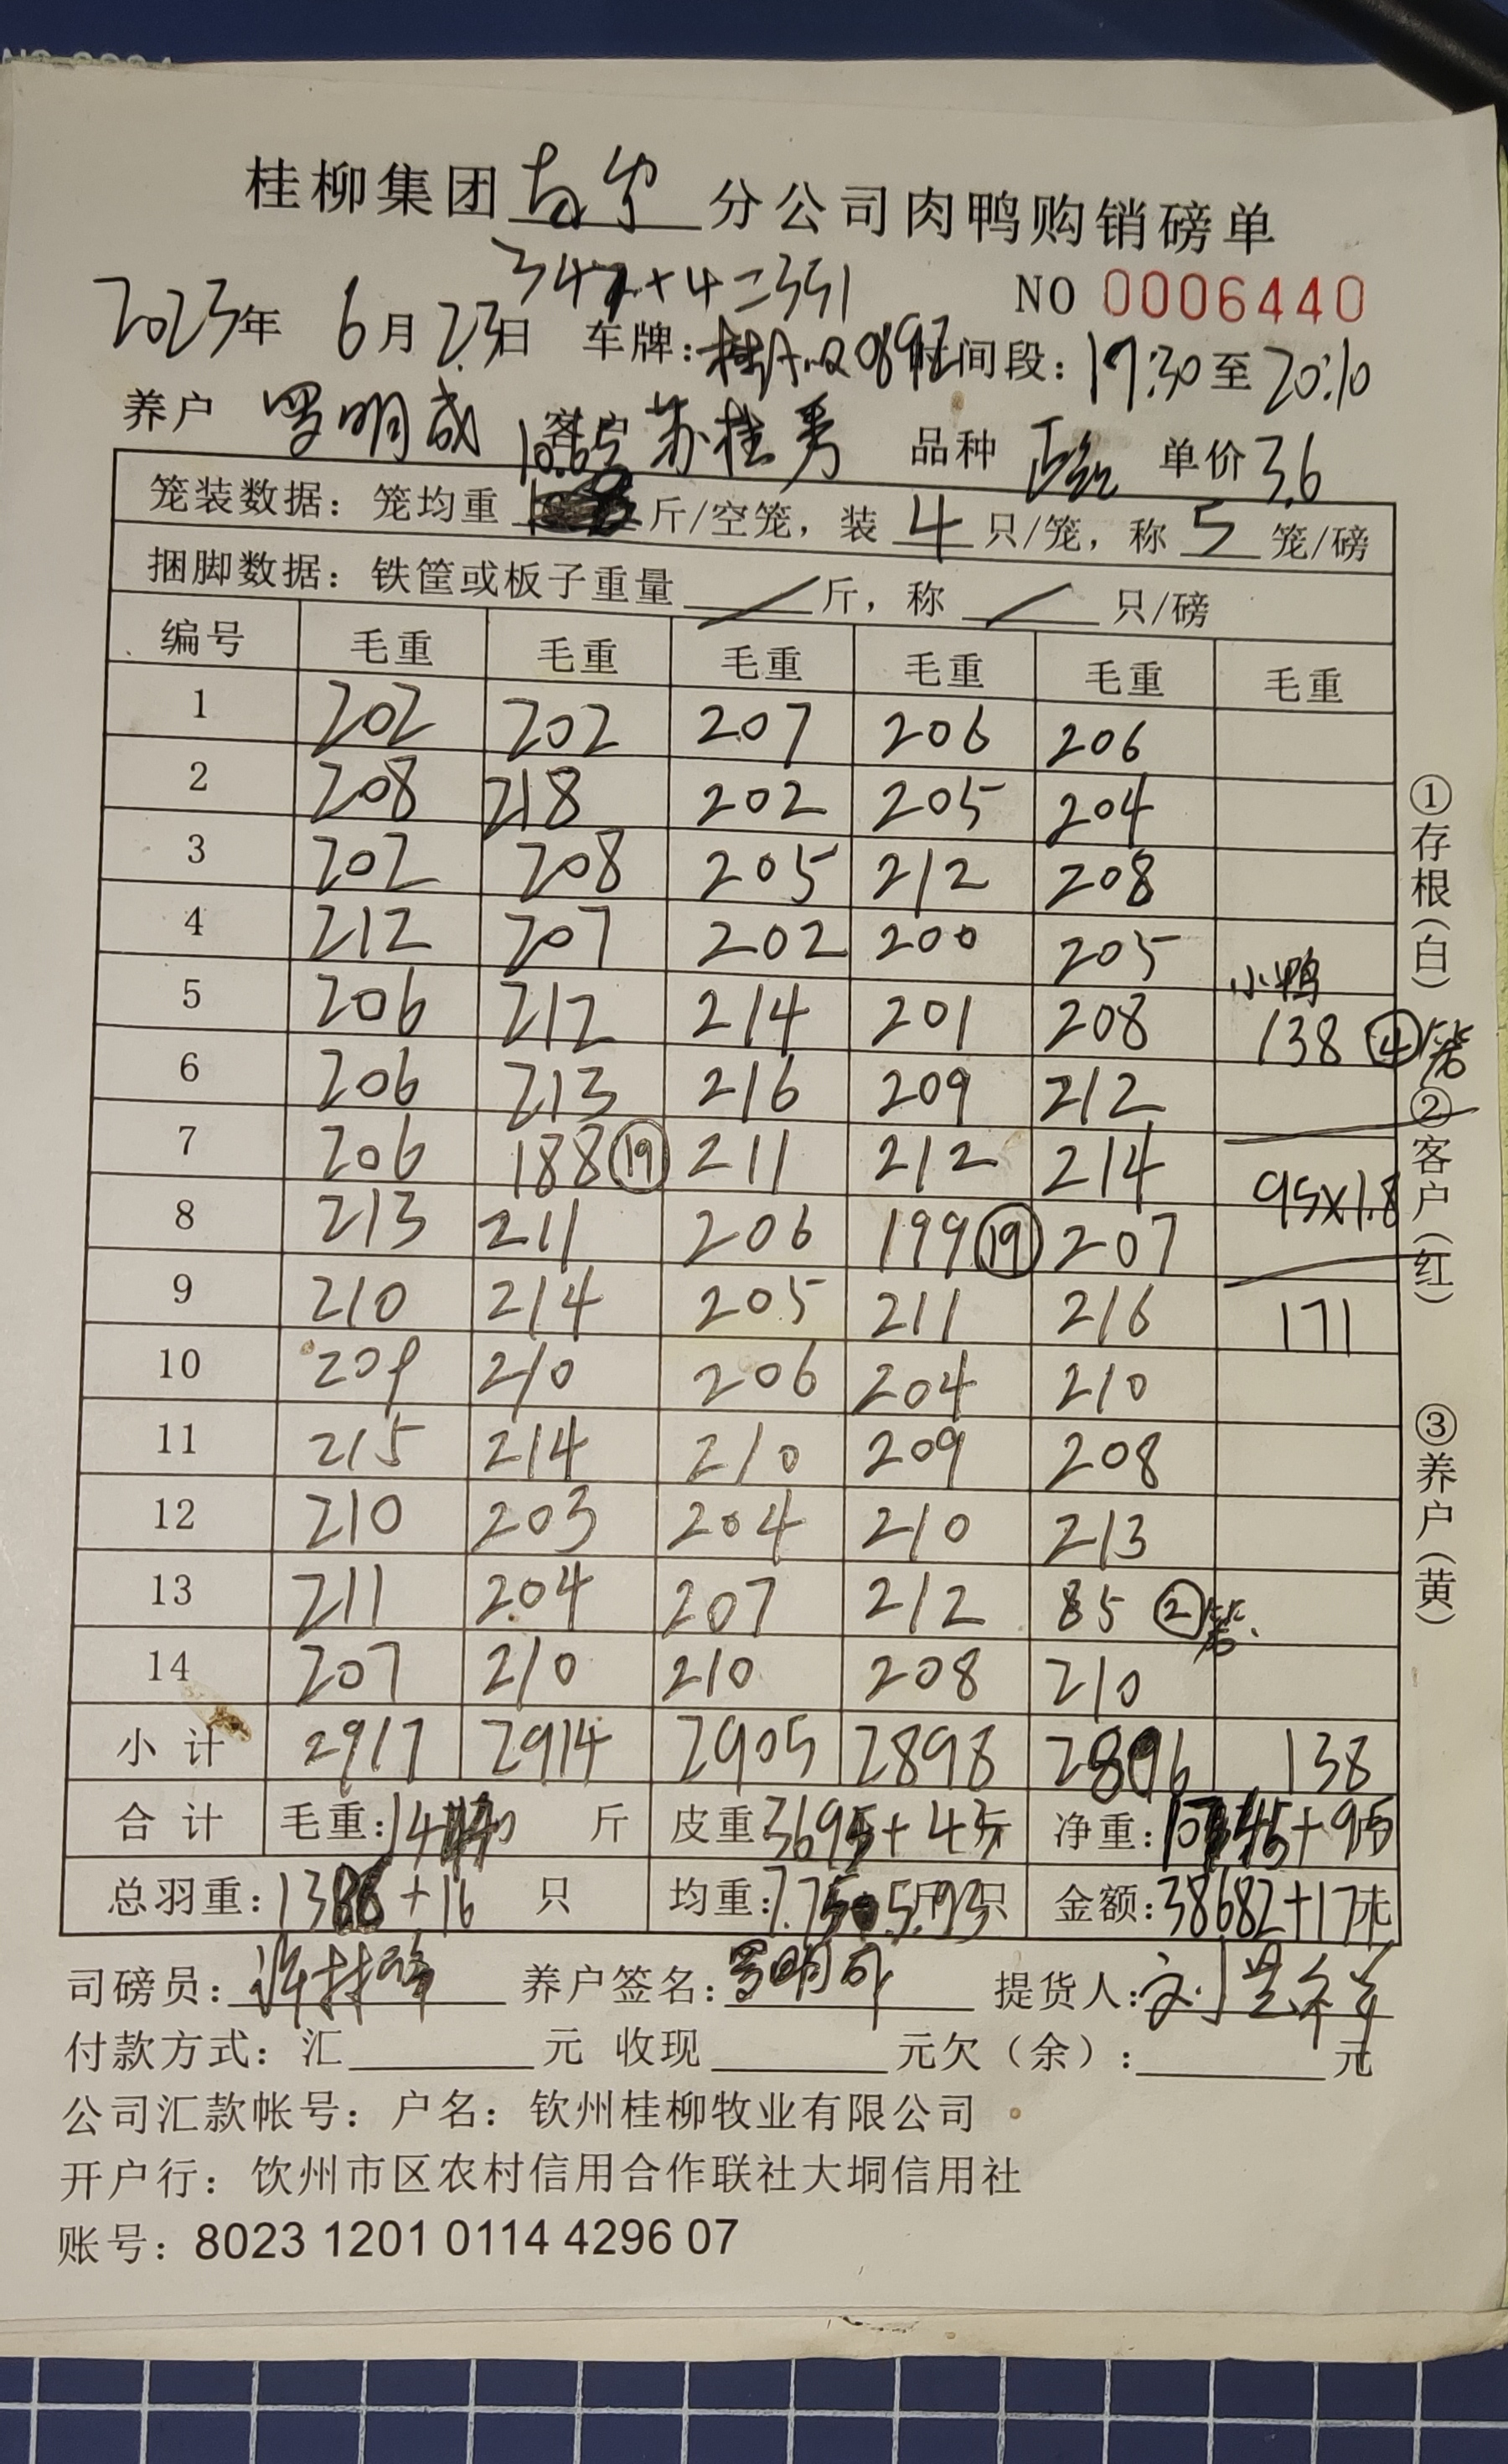 桂柳集团 分公司肉鸭购销磅单
347+4=351
NO 0006440
2023年 6月23日 车牌: 时间段: 17:30至20:10
养户 罗明成 客户 苏桂秀 品种 单价3.6
10.65
笼装数据: 笼均重 斤/空笼, 装 4 只/笼, 称 5 笼/磅
捆脚数据: 铁筐或板子重量 / 斤, 称 / 只/磅
编号 毛重 毛重 毛重 毛重 毛重 毛重
1 202 202 207 206 206
2 208 218 202 205 204
3 202 208 205 212 208
4 212 207 202 200 205
小鸭
5 206 212 214 201 208 138 ④笼
6 206 213 216 209 212
7 206 188⑲ 211 212 214
95×1.8
8 213 211 206 199⑲ 207
9 210 214 205 211 216 171
10 209 210 206 204 210
11 215 214 210 209 208
12 210 203 204 210 213
13 211 204 207 212 85 ②笼
14 207 210 210 208 210
小计 2917 2914 2905 2898 2896 138
合计 毛重: 斤 皮重:3695+43斤 净重: +95
总羽重:1386+16 只 均重:7.75 5.93 只 金额:38682+171元
司磅员: 养户签名:罗明成 提货人:
付款方式: 汇 元 收现 元欠(余): 元
公司汇款帐号: 户名: 钦州桂柳牧业有限公司
开户行: 饮州市区农村信用合作联社大垌信用社
账号: 8023 1201 0114 4296 07
①存根(白)
②客户(红)
③养户(黄)